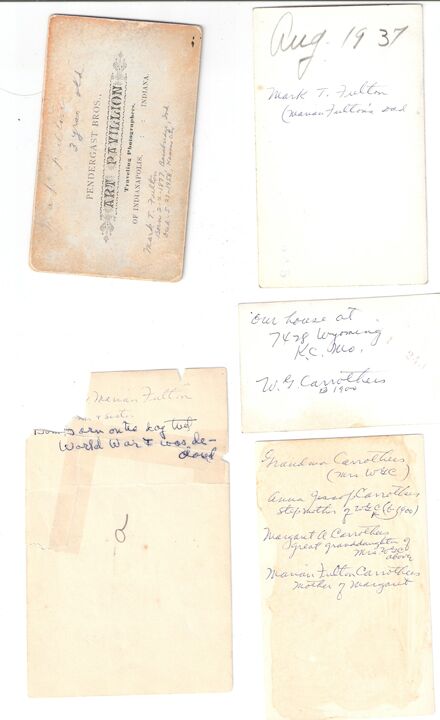 Mark Fulton
3 years old
PENDERGAST BROS.,
ART PAVILLION
Traveling Photographers,
OF INDIANAPOLIS, : : INDIANA.
Mark T. Fulton
Born 2-2-1877
Died 5-21-1958
Aug. 1937
Mark T. Fulton
(Marian Fulton's dad
our house at
7428 Wyoming
K.C. Mo.
W. G Carrothers
B 1900
Marian Fulton
+ sister
Born on the day that
World War I was de-
clared
a
Grandma Carrothers
(Mrs WGC)
Anna Jessop Carrothers
Step mother of WGC (b 1900)
Margaret A Carrothers
great granddaughter of
Mrs WGC
above
Marian Fulton Carrothers
mother of Margaret